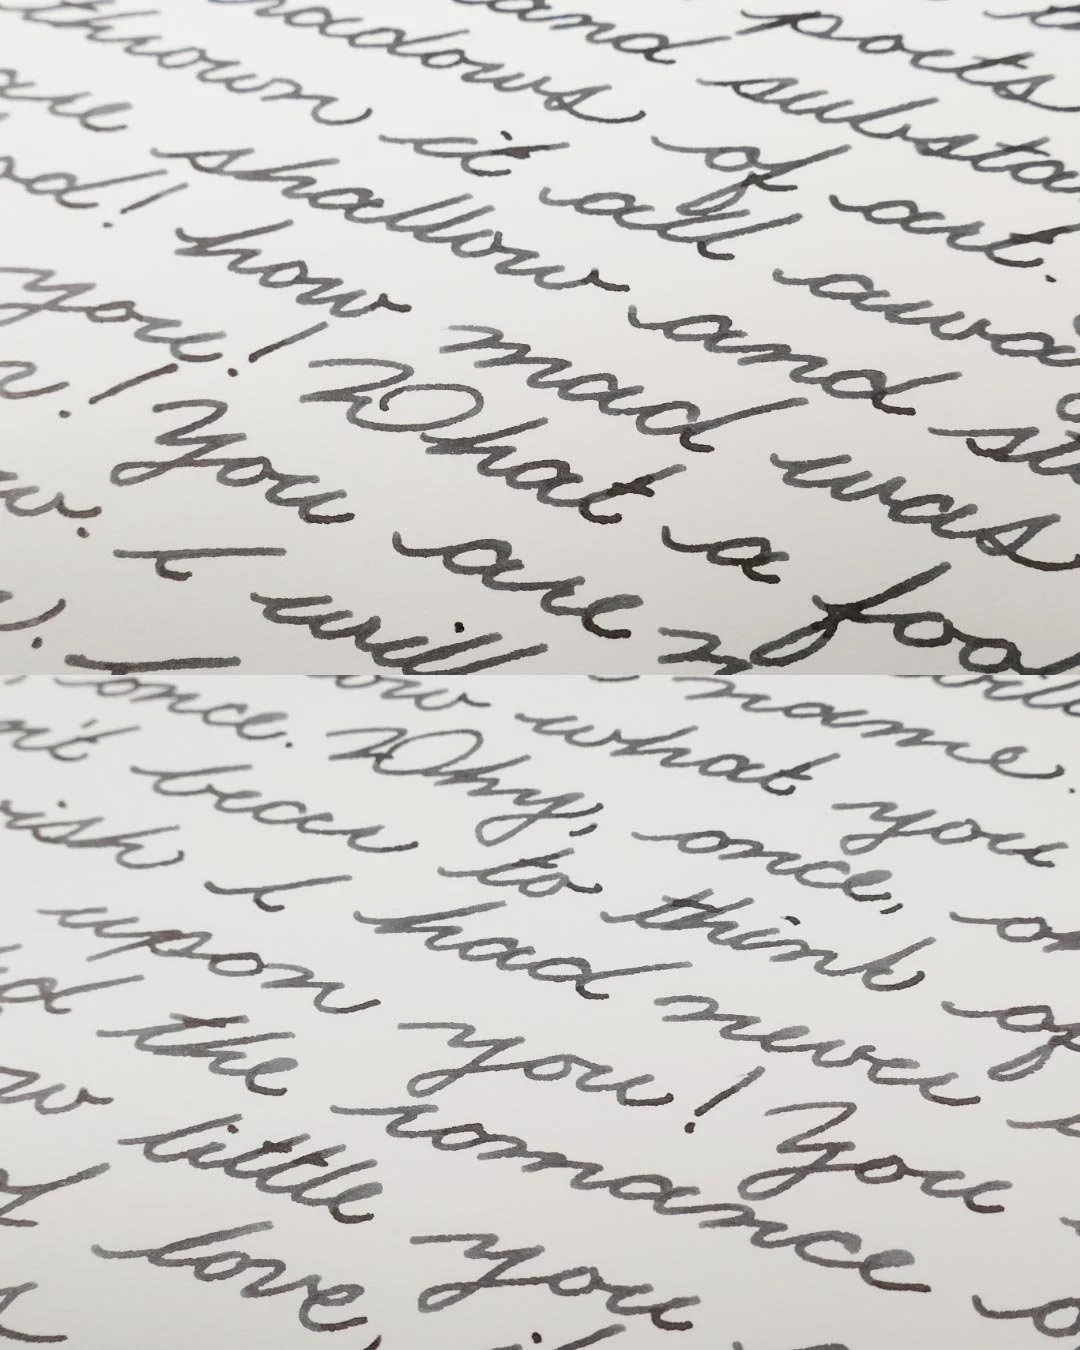 poets
and substa
shadows of art.
thrown it all awa
are shallow and stu
od! how mad was
you! What a foo
You are n
w. I will
name.
ow what you
once. Why, once, o
n't bear to think of
ish I had never
upon you! You
the romance o
little you
love,